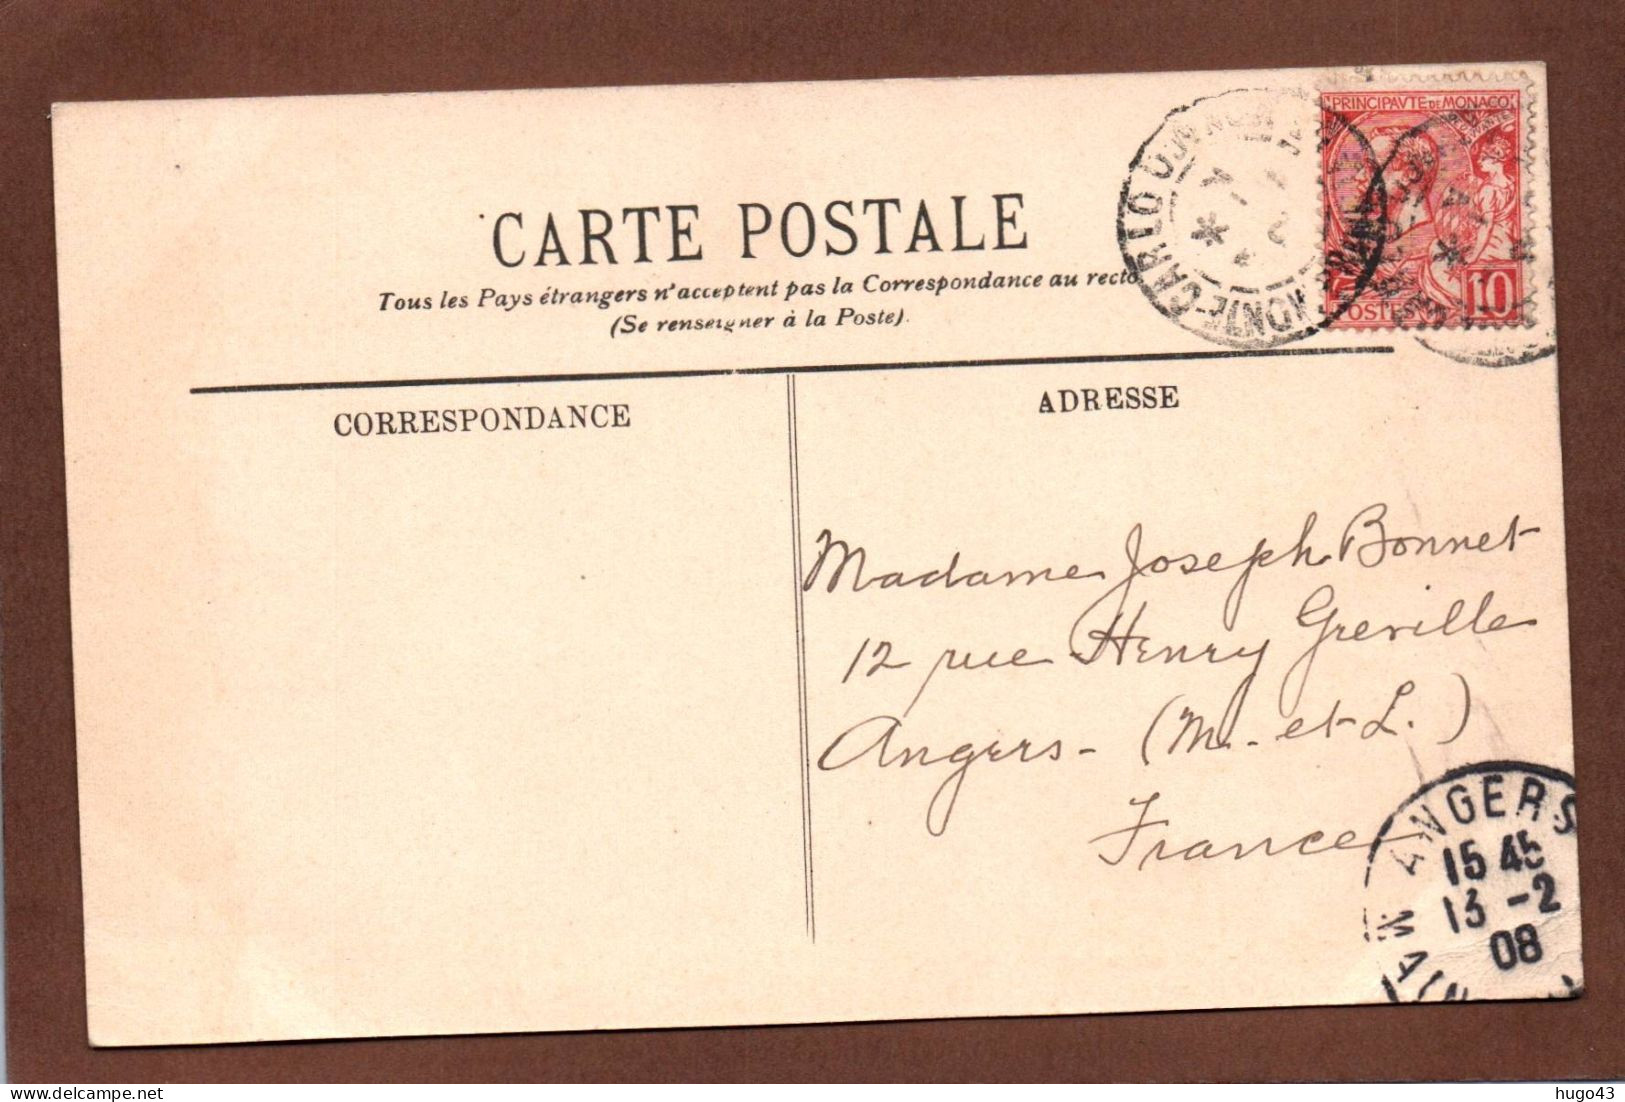 CARTE POSTALE
Tous les Pays étrangers n'acceptent pas la Correspondance au recto
(Se renseigner à la Poste).
PRINCIPAVTE DE MONACO
POSTE
10
MONTE-CARLO
CORRESPONDANCE
ADRESSE
Madame Joseph Bonnet
12 rue Henry Greville
Angers - (M. et L.)
France
ANGERS
15 45
13 -2
08
MAIN
hugo43